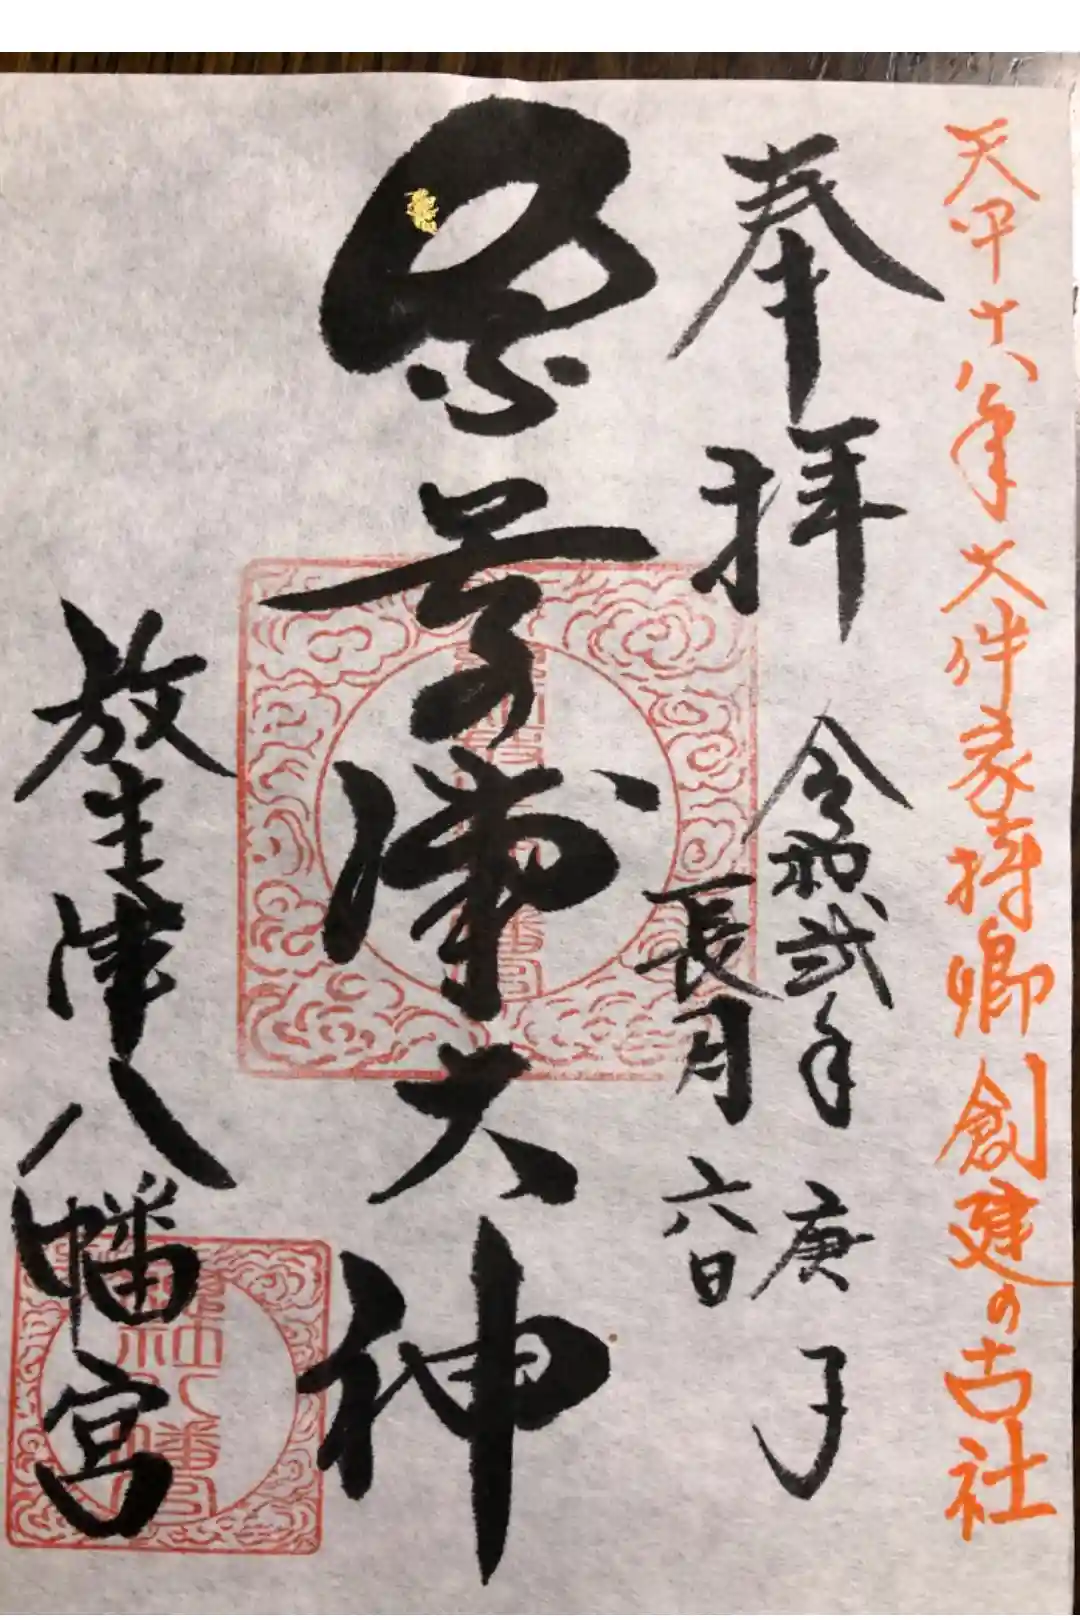 天平十八年 大伴家持卿創建の古社
奉拝
令和弐年 庚子
長月六日
大神
放生津八幡宮